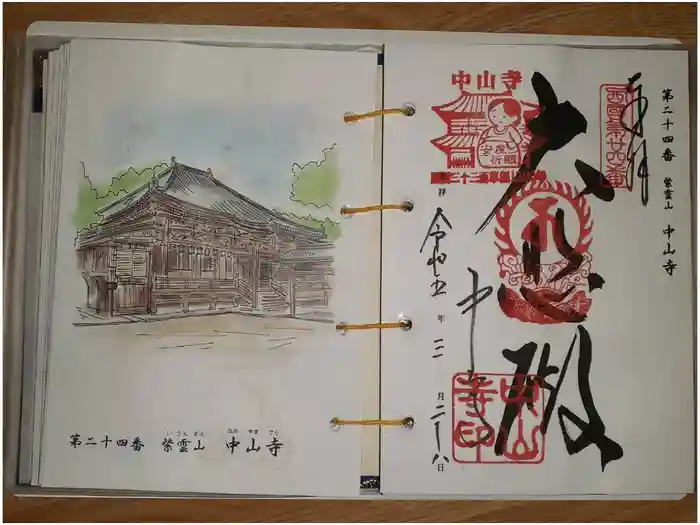 しうんざん なか やま でら
第二十四番 紫雲山 中山寺
第二十四番 紫雲山 中山寺
奉拝
西国第廿四番
大悲殿
中山寺
中山寺
安産
祈願
拝 令和五年三月二十八日
中山
寺印